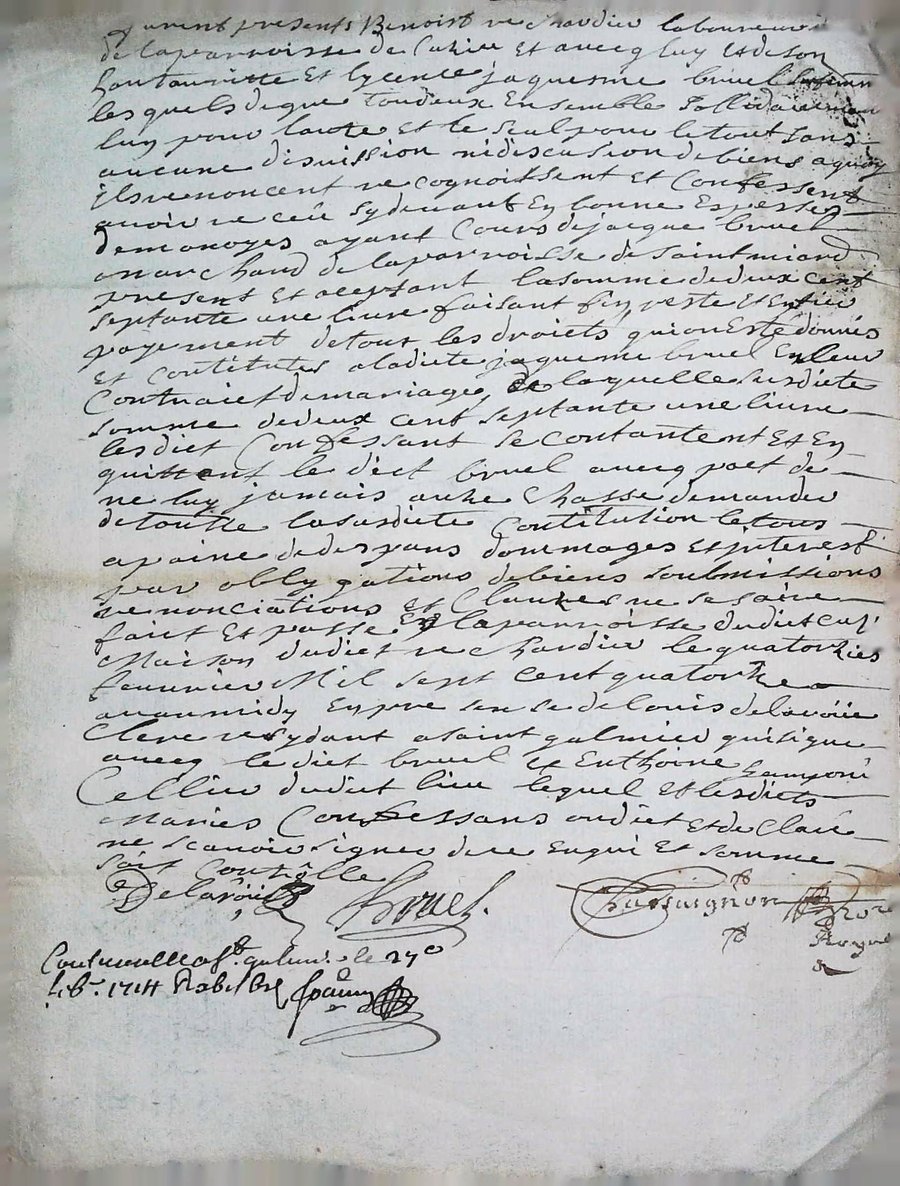 furent presents Benoist rechardier laboureur
de la parroisse de Cuzieu Et avecq luy Et de son
hauthauritte Et lycence jaquesme bruel
les quels de gre Toudeux Ensemble Sollidairemen
luy pour laute et le seul pour le tout sans
aucune divission ni discusion de biens a quoy
ils renoncent recognoissent et Confessent
avoir receu sy devant En bonne Espesses
de monoyes ayant Cours de jacque bruel
marchand de la parroisse de saint miard
present Et aceptant la somme de deux cent
septante une livre faisant fin reste Et Entier
payement de tout les droiets qui on Este donnes
et Contitutes a ladicte jaquesme bruel En leur
Contraict de mariage, de laquelle susdicte
somme de deux cent septante une livre
les dict Confessant se contantent Et En
quittent le dict bruel avecq pact de
ne luy jamais autre Chasse demander
de toutte la susdicte Contitution le tous
a paine de despans dommages Et interest
par oblygations de biens soubmissions
renonciations et Clauzes ne sesaire
faict Et passe En la parroisse dudict cuz:
Maison dudict rechardier le quatorzies
feuvrier Mil sept cent quatorze
avan midy En presense de louis delavoüe
Clerc resydant a saint galmier qui signe
avecq le dict bruel Et Enthoine
Cellier dudict lieu lequel Et lesdicts
Maries Confessans on dict Et de Claré
ne scavoir signer de ce Enqui Et somme
soit Controlle
Delavoüe Bruel. Chassaignon
Roya
Controlle a St. galmier le 27e
feb. 1714 R